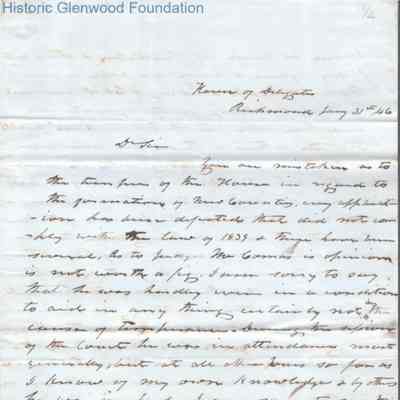 Historic Glenwood Foundation
1/2
House of Delegates
Richmond Jany 31st /46
Dr Sir
You are mistaken as to
the temper of the House in regard to
the formations of New Counties, every applicat
-ion has been defeated that did not com
-ply with the law of 1839 & there have been
several. As to Judge McComas is opinion
is not worth a fig. I was sorry to say
that he was hardly ever in a condition
to aid in any thing, certainly not the
cause of temperance. During the session
of the Court he was in attendance most
generally, but at all other hours so far as
I know of my own Knowledge & by others
he was in